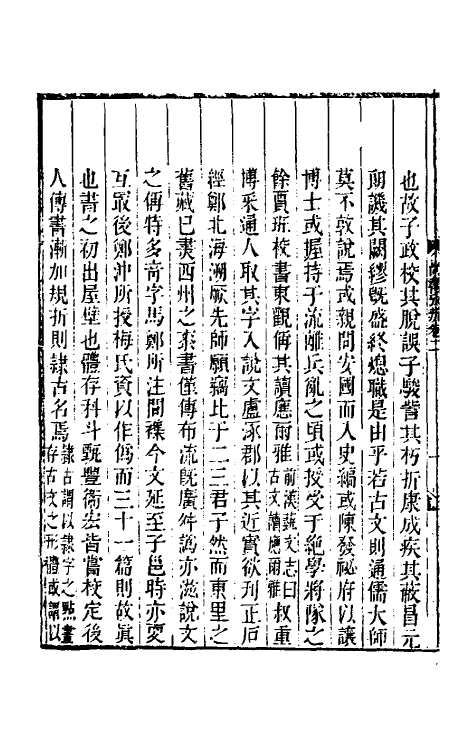 也故子政校其脫誤子駿訾其朽折康成疾其蔽冒元
朗譏其闕繆旣盛終熄職是由乎若古文則通儒大師
莫不敦說焉或親問安國而入史編或陳發祕府以讓
博士或握持于流離兵亂之頃或授受于絶學將隊之
餘賈班校書東觀偁其讀應爾雅前漢蓺文志曰古文讀應爾雅叔重
博采通人取其字入說文盧涿郡以其近實欲刊正后
經鄭北海淵厥先師願竊比于二三君子然而東里之
舊藏已㷊西州之桼書僅傳布流旣廣舛譌亦滋說文
之偁特多奇字馬鄭所注間襍今文延至子邕時亦㪅
互最後鄭沖所授梅氏資以作僞而三十一篇則故眞
也書之初出屋壁也體存科斗甄豐衛宏皆嘗校定後
人傳書漸加規折則隷古名焉隷古謂以隷字之點畫存古文之形體或謂以